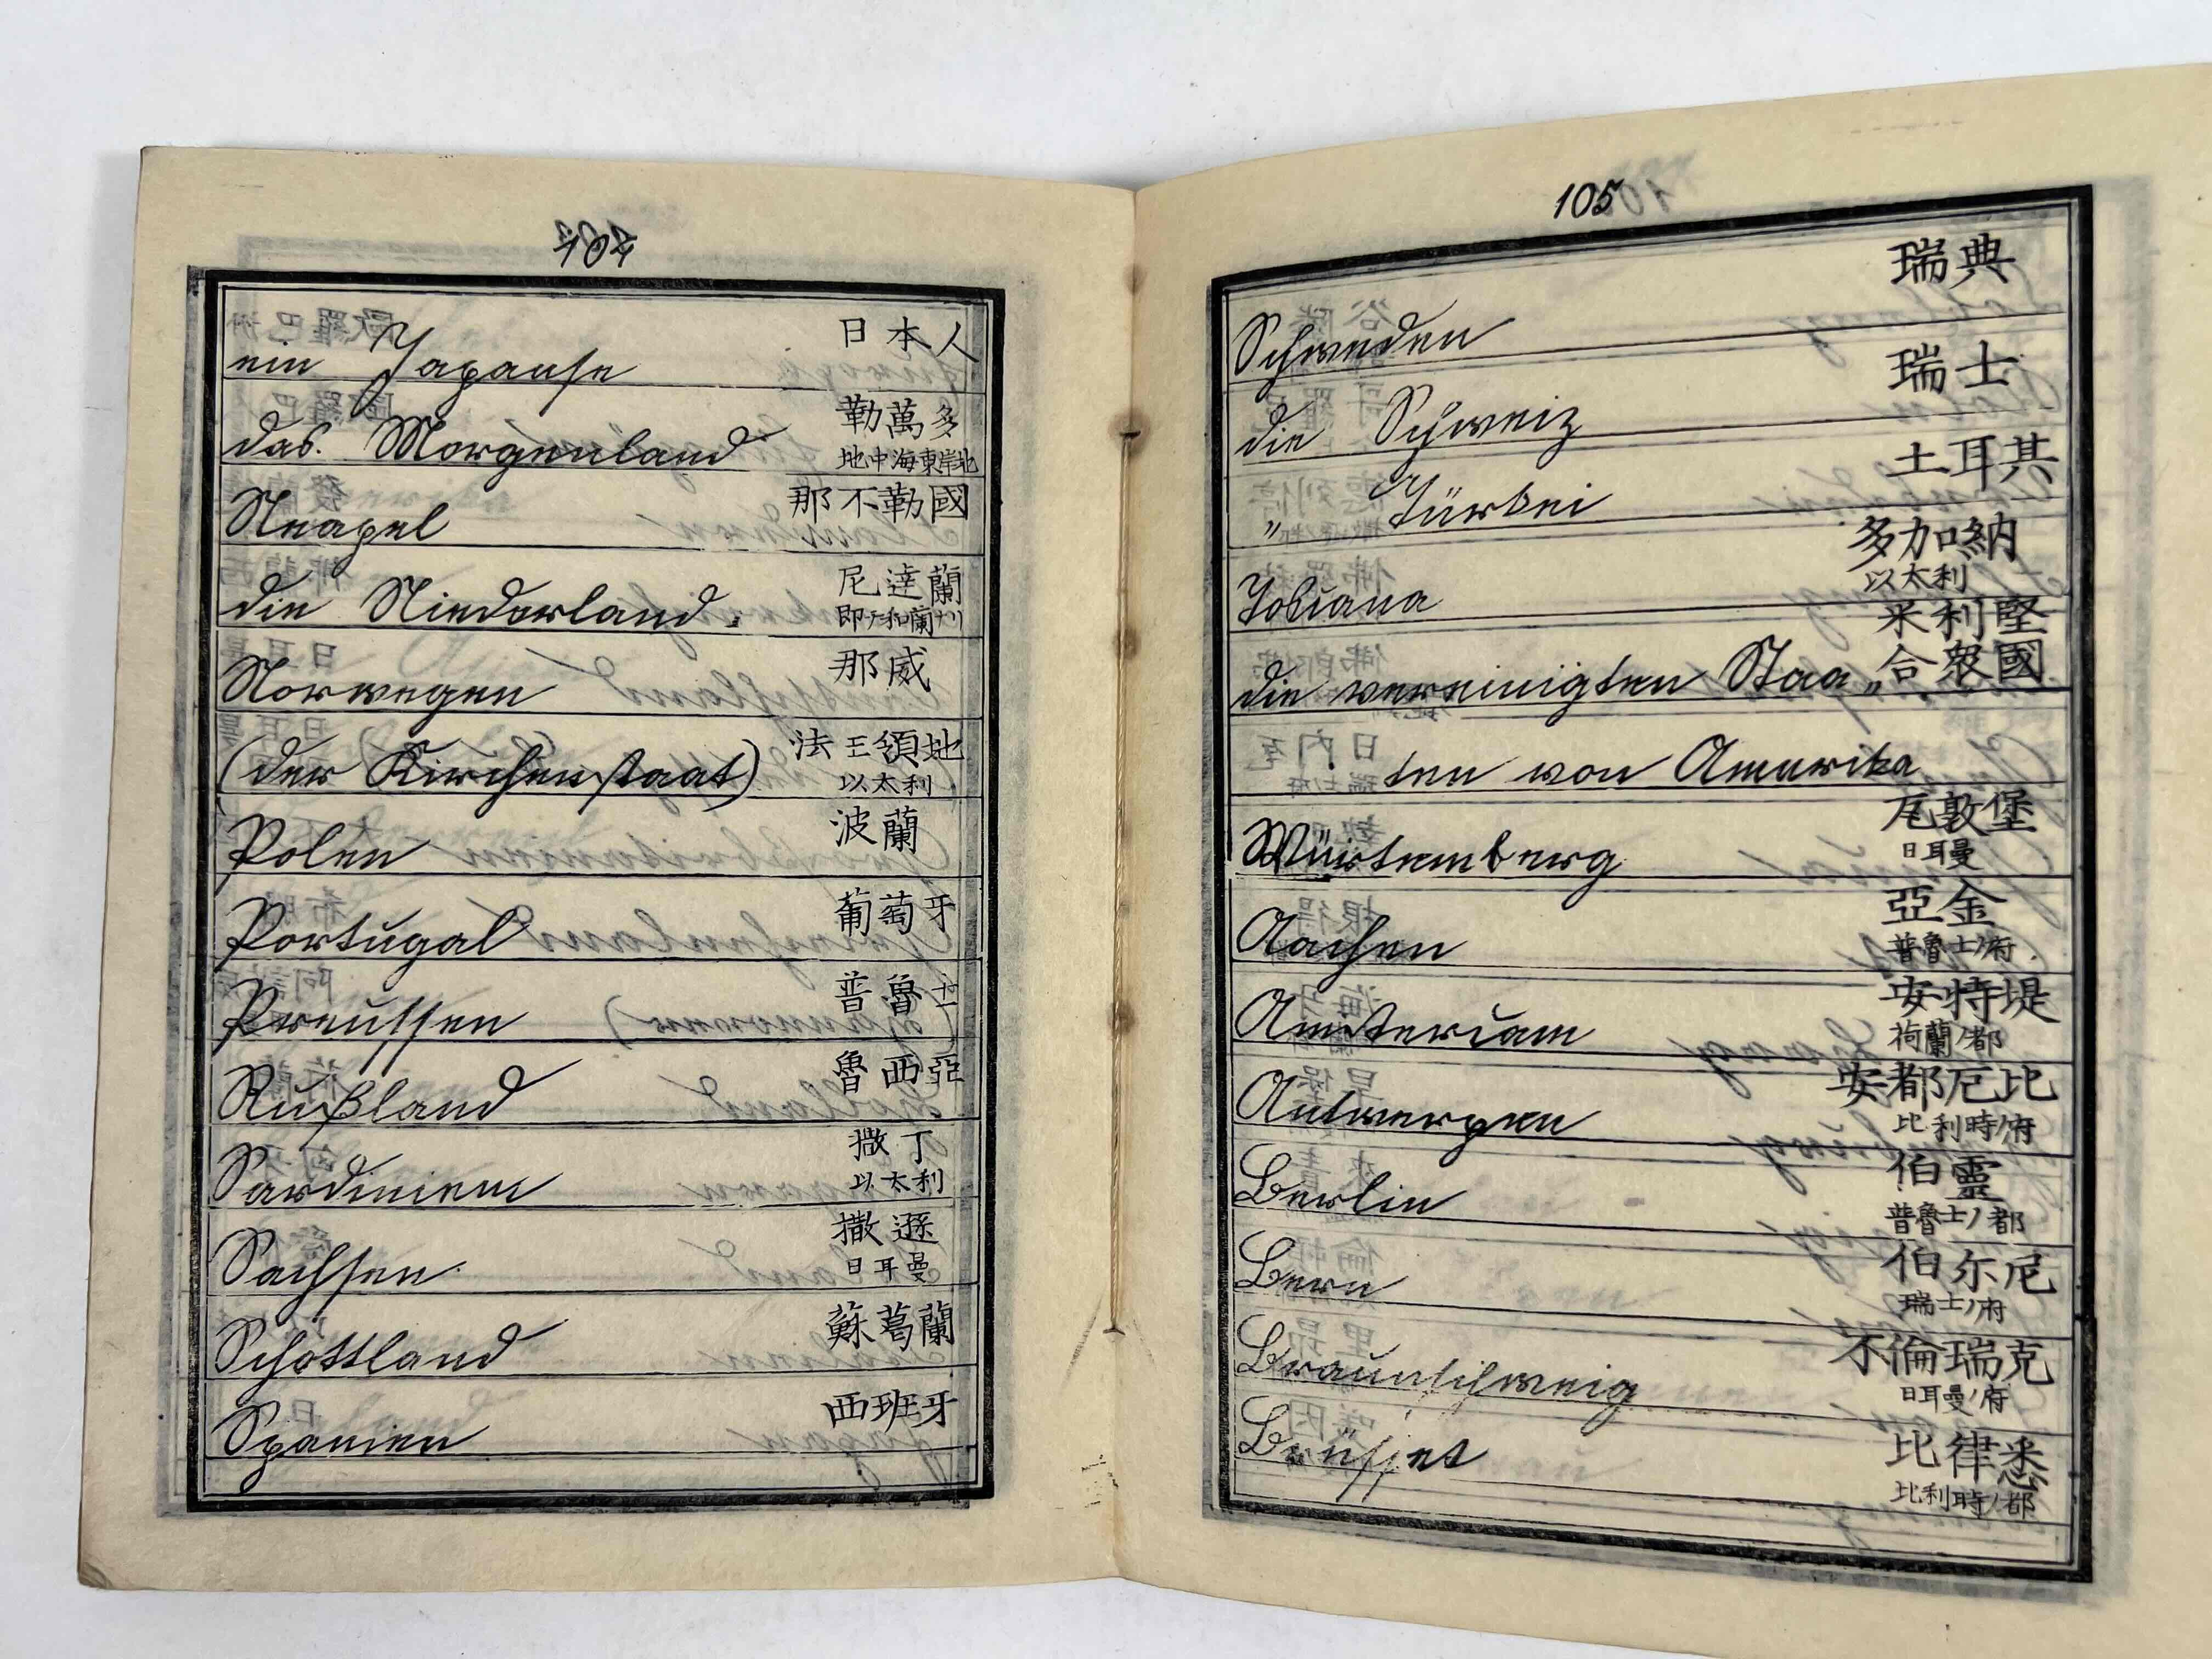 104
ein Japanese 日本人
das. Morgenland 勒萬多
地中海東岸地
Neapel 那不勒國
die Niederland. 尼達蘭
即チ和蘭ナリ
Norwegen 那威
(der Kirchenstaat) 法王領地
以太利
Polen 波蘭
Portugal 葡萄牙
Preussen 普魯士
Rußland 魯西亞
Sardinien 撒丁
以太利
Sachsen 撒遜
日耳曼
Schottland 蘇葛蘭
Spanien 西班牙
105
Schweden 瑞典
die Schweiz 瑞士
„ Türkei 土耳其
Toscana 多加納
以太利
米利堅
die vereinigten Staa„ 合衆國
ten von Amerika
Würtemberg 瓦敦堡
日耳曼
Aachen 亞金
普魯士ノ府
Amsterdam 安特堤
荷蘭ノ都
Antwerpen 安都厄比
比利時ノ府
Berlin 伯靈
普魯士ノ都
Bern 伯尓尼
瑞士ノ府
Braunschweig 不倫瑞克
日耳曼ノ府
Brüssel 比律悉
比利時ノ都